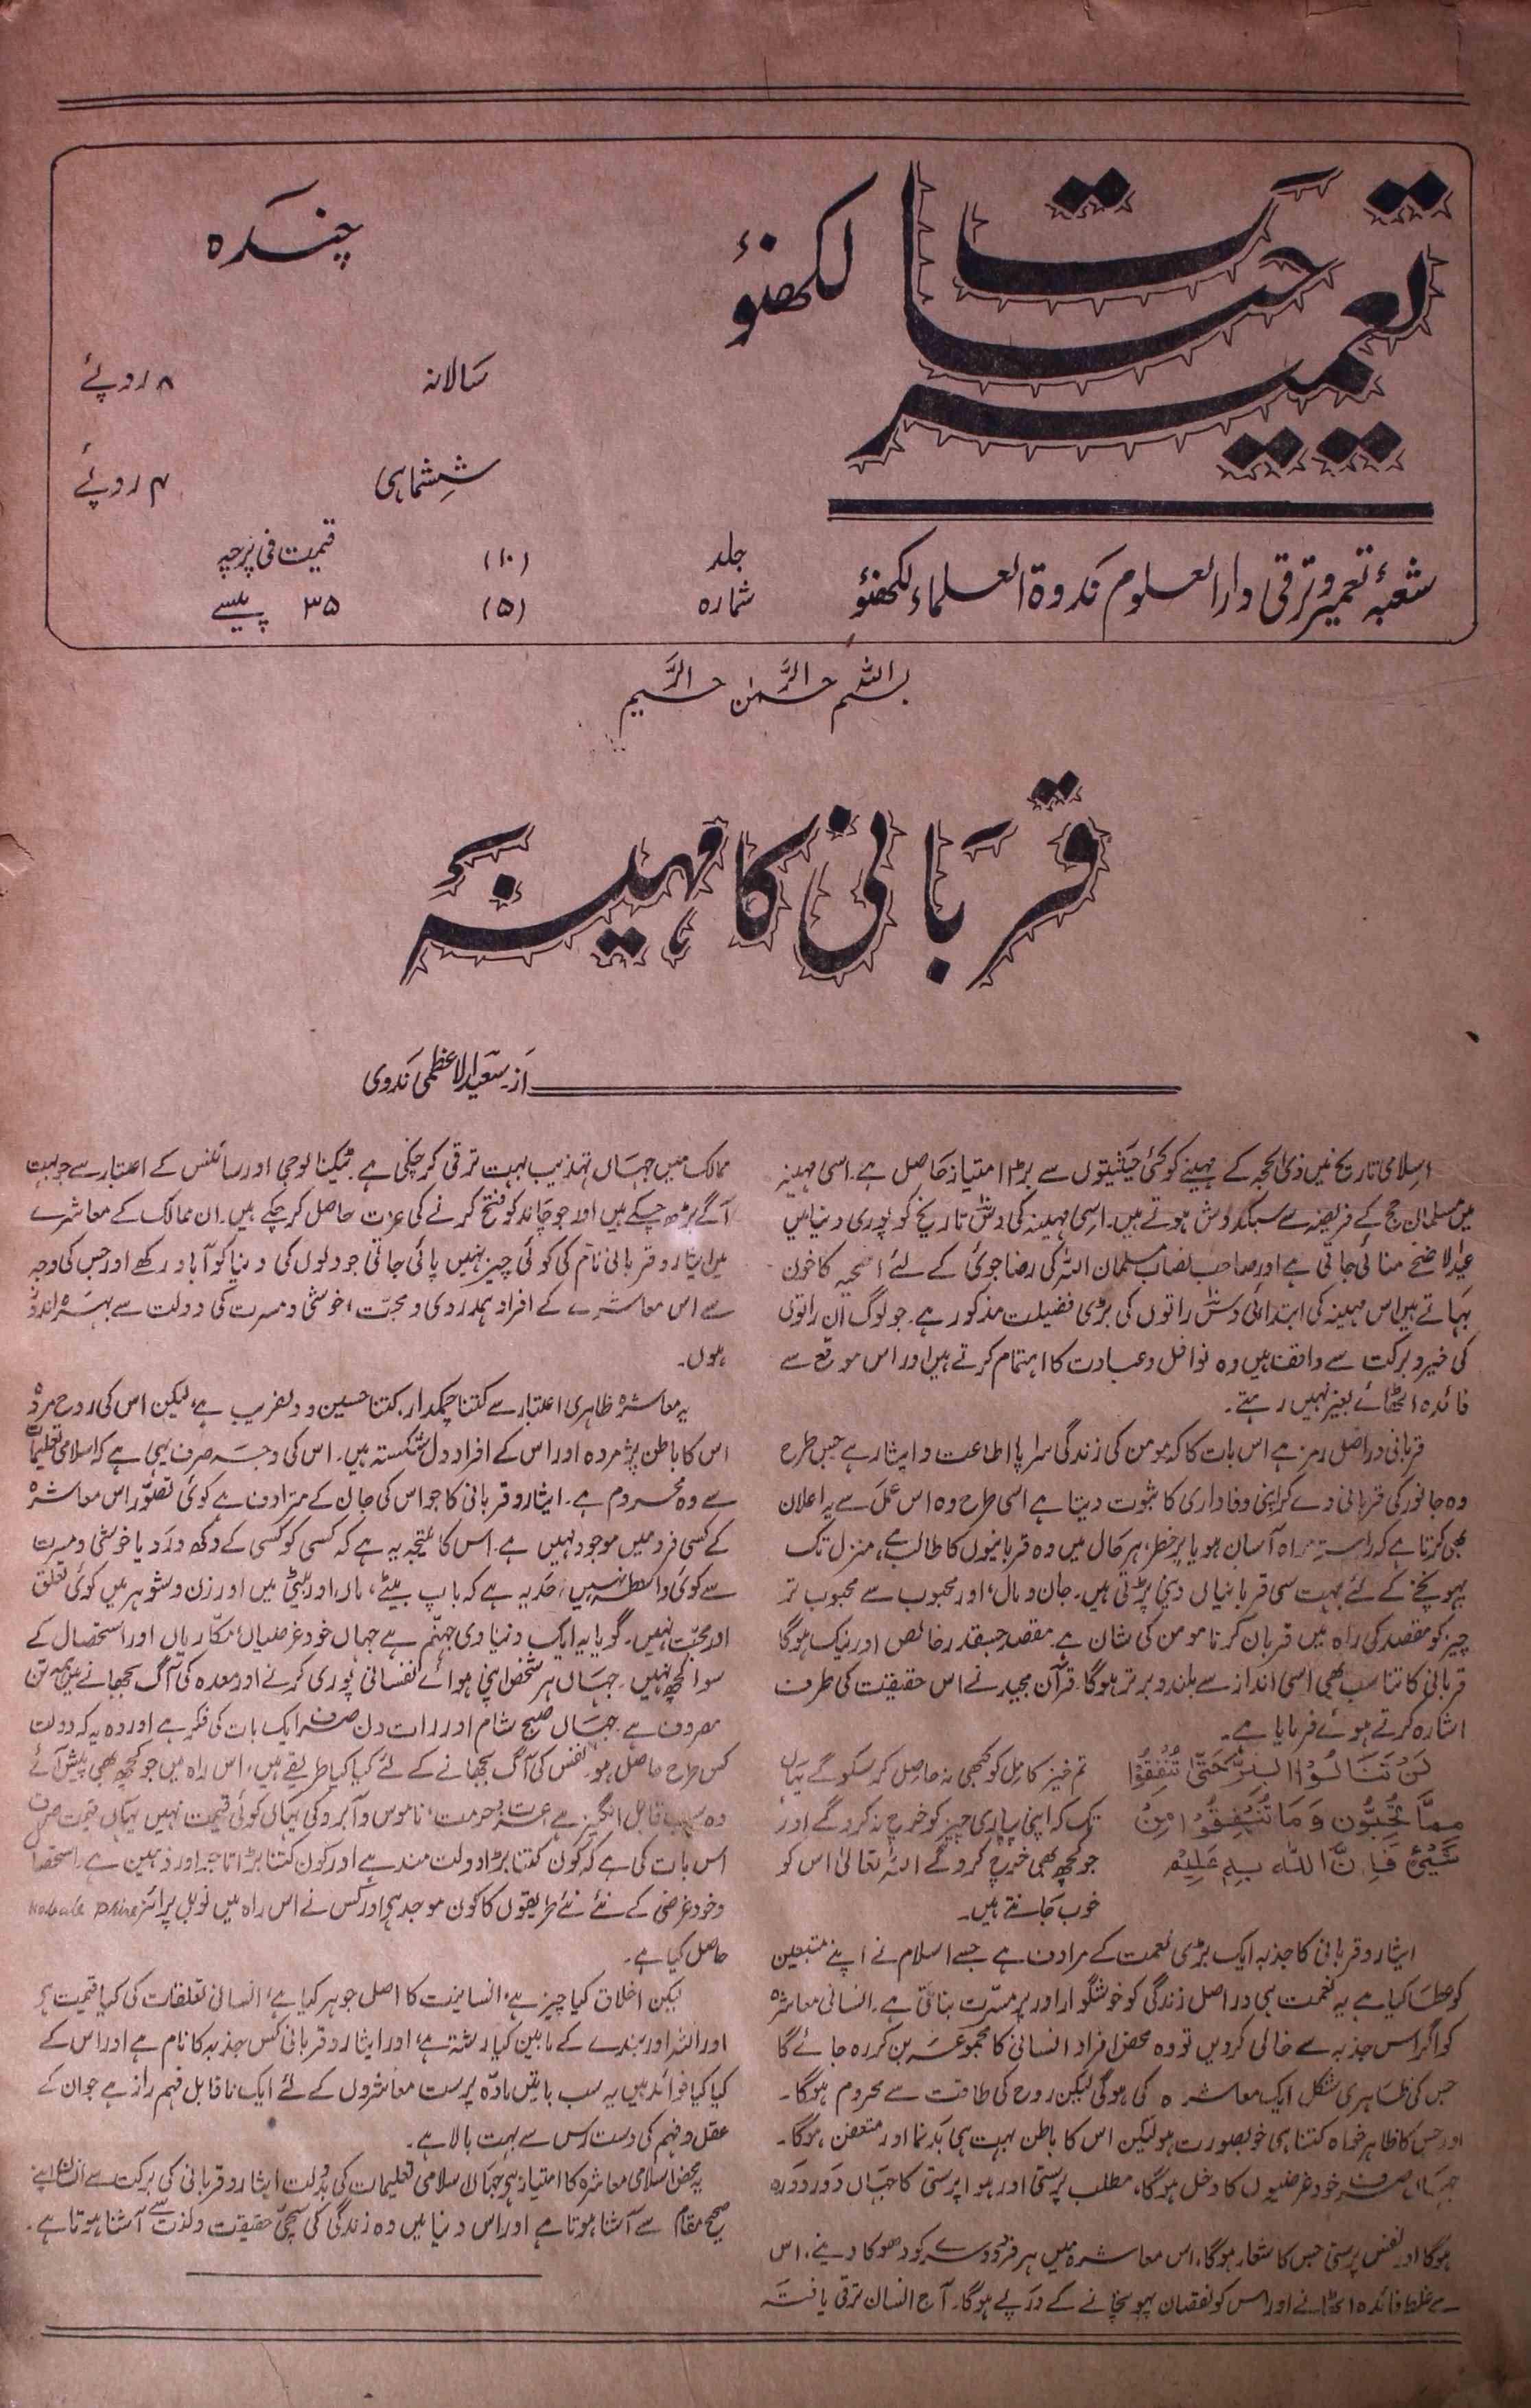 تعمیر حیات لکھنؤ
چندہ
سالانہ ۸ روپئے
ششماہی ۴ روپئے
جلد (۱۰) قیمت فی پرچہ
شمارہ (۵) ۳۵ پیسے
شعبۂ تعمیر و ترقی دارالعلوم ندوۃ العلماء لکھنؤ
بسم اللہ الرحمٰن الرحیم
قربانی کا مہینہ
از سعید الاعظمی ندوی
اسلامی تاریخ میں ذی الحجہ کے مہینے کو کئی حیثیتوں سے بڑا امتیاز حاصل ہے۔ اسی مہینہ
میں مسلمان حج کے فریضہ سے سبکدوش ہوتے ہیں۔ اسی مہینہ کی دس تاریخ کو پوری دنیا میں
عید الاضحےٰ منائی جاتی ہے اور صاحب نصاب مسلمان اللہ کی رضا جوئی کے لئے اضحیہ کا خون
بہاتے ہیں اس مہینہ کی ابتدائی دس راتوں کی بڑی فضیلت مذکور ہے۔ جو لوگ ان راتوں
کی خیر و برکت سے واقف ہیں وہ نوافل و عبادت کا اہتمام کرتے ہیں اور اس موقع سے
فائدہ اٹھائے بغیر نہیں رہتے۔
قربانی در اصل رمز ہے اس بات کا کہ مومن کی زندگی سراپا اطاعت و ایثار ہے جس طرح
وہ جانور کی قربانی دے کر اپنی وفاداری کا ثبوت دیتا ہے اسی طرح وہ اس عمل سے یہ اعلان
بھی کرتا ہے کہ راستہ آسان ہو یا پر خطر، ہر حال میں وہ قربانیوں کا طالب ہے، منزل تک
پہونچنے کے لئے بہت سی قربانیاں دینی پڑتی ہیں۔ جان و مال، اور محبوب سے محبوب تر
چیز کو مقصد کی راہ میں قربان کرنا مومن کی شان ہے۔ مقصد جسقدر خالص اور نیک ہوگا
قربانی کا تناسب بھی اسی انداز سے بلند و برتر ہوگا۔ قرآن مجید نے اس حقیقت کی طرف
اشارہ کرتے ہوئے فرمایا ہے۔
لَنْ تَنَالُوا الْبِرَّ حَتّٰی تُنْفِقُوْا تم خیر کامل کو کبھی نہ حاصل کر سکو گے یہاں
مِمَّا تُحِبُّوْنَ وَمَا تُنْفِقُوْا مِنْ تک کہ اپنی پیاری چیز کو خرچ نہ کروگے اور
شَیْئٍ فَاِنَّ اللہَ بِہٖ عَلِیْم جو کچھ بھی خرچ کروگے اللہ تعالیٰ اس کو
خوب جانتے ہیں۔
ایثار و قربانی کا جذبہ ایک بڑی نعمت کے مرادف ہے جسے اسلام نے اپنے متبعین
کو عطا کیا ہے یہ نعمت ہی در اصل زندگی کو خوشگوار اور پر مسرت بناتی ہے۔ انسانی معاشرہ
کو اگر اس جذبہ سے خالی کردیں تو وہ محض افراد انسانی کا مجموعہ بن کر رہ جائے گا
جس کی ظاہری شکل ایک معاشرہ کی ہوگی لیکن روح کی طاقت سے محروم ہوگا۔
اور جس کا ظاہر خواہ کتنا ہی خوبصورت ہو لیکن اس کا باطن بہت ہی بدنما اور متعفن ہوگا۔
جہاں صرف خود غرضیوں کا دخل ہوگا، مطلب پرستی اور ہوا پرستی کا جہاں دور دورہ
ہوگا اور نفس پرستی جس کا شعار ہوگا، اس معاشرہ میں ہر فرد دوسرے کو دھوکا دینے، اس
سے غلط فائدہ اٹھانے اور اس کو نقصان پہونچانے کے درپے ہوگا۔ آج انسان ترقی یافتہ
ممالک میں جہاں تہذیب بہت ترقی کر چکی ہے۔ ٹیکنالوجی اور سائنس کے اعتبار سے جو بہت
آگے بڑھ چکے ہیں اور جو چاند کو فتح کرنے کی عزت حاصل کر چکے ہیں۔ ان ممالک کے معاشرے
میں ایثار و قربانی نام کی کوئی چیز نہیں پائی جاتی جو دلوں کی دنیا کو آباد رکھے اور جس کی وجہ
سے اس معاشرے کے افراد ہمدردی و محبت، خوشی و مسرت کی دولت سے بہرہ اندوز
ہوں۔
یہ معاشرہ ظاہری اعتبار سے کتنا چمکدار، کتنا حسین و دلفریب ہے، لیکن اس کی روح مردہ
اس کا باطن پژمردہ اور اس کے افراد دل شکستہ ہیں۔ اس کی وجہ صرف یہی ہے کہ اسلامی تعلیمات
سے وہ محروم ہے۔ ایثار و قربانی کا جو اس کی جان کے مرادف ہے کوئی تصور اس معاشرہ
کے کسی فرد میں موجود نہیں ہے۔ اس کا نتیجہ یہ ہے کہ کسی کو کسی کے دکھ درد یا خوشی و مسرت
سے کوئی واسطہ نہیں، حد یہ ہے کہ باپ بیٹے، ماں اور بیٹی میں اور زن و شوہر میں کوئی تعلق
اور محبت نہیں۔ گویا یہ ایک دنیاوی جہنم ہے جہاں خود غرضیاں، مکاریاں اور استحصال کے
سوا کچھ نہیں۔ جہاں ہر شخص اپنی ہوائے نفسانی پوری کرنے اور معدہ کی آگ بجھانے میں ہمہ تن
مصروف ہے۔ جہاں صبح شام اور رات دن صرف ایک بات کی فکر ہے اور وہ یہ کہ دولت
کس طرح حاصل ہو۔ نفس کی آگ بجھانے کے لئے کیا کیا طریقے ہیں، اس راہ میں جو کچھ بھی پیش آئے
وہ سب قابل انگیز ہے عزت و حرمت، ناموس و آبرو کی یہاں کوئی قیمت نہیں یہاں قیمت صرف
اس بات کی ہے کہ کون کتنا بڑا دولت مند ہے اور کون کتنا بڑا تاجر اور ذہین ہے۔ استحصال
و خود غرضی کے نئے نئے طریقوں کا کون موجد ہے اور کس نے اس راہ میں نوبل پرائز
حاصل کیا ہے۔
لیکن اخلاق کیا چیز ہے، انسانیت کا اصل جوہر کیا ہے، انسانی تعلقات کی کیا قیمت ہے
اور اللہ اور بندے کے مابین کیا رشتہ ہے، اور ایثار و قربانی کس جذبہ کا نام ہے اور اس کے
کیا کیا فوائد ہیں یہ سب باتیں مادّہ پرست معاشروں کے لئے ایک ناقابل فہم راز ہے جو ان کے
عقل و فہم کی دسترس سے بہت بالا ہے۔
یہ محض اسلامی معاشرہ کا امتیاز ہے جہاں اسلامی تعلیمات کی بدولت ایثار و قربانی کی برکت سے انسان اپنے
صحیح مقام سے آشنا ہوتا ہے اور اس دنیا میں وہ زندگی کی سچی حقیقت و لذت سے آشنا ہوتا ہے۔